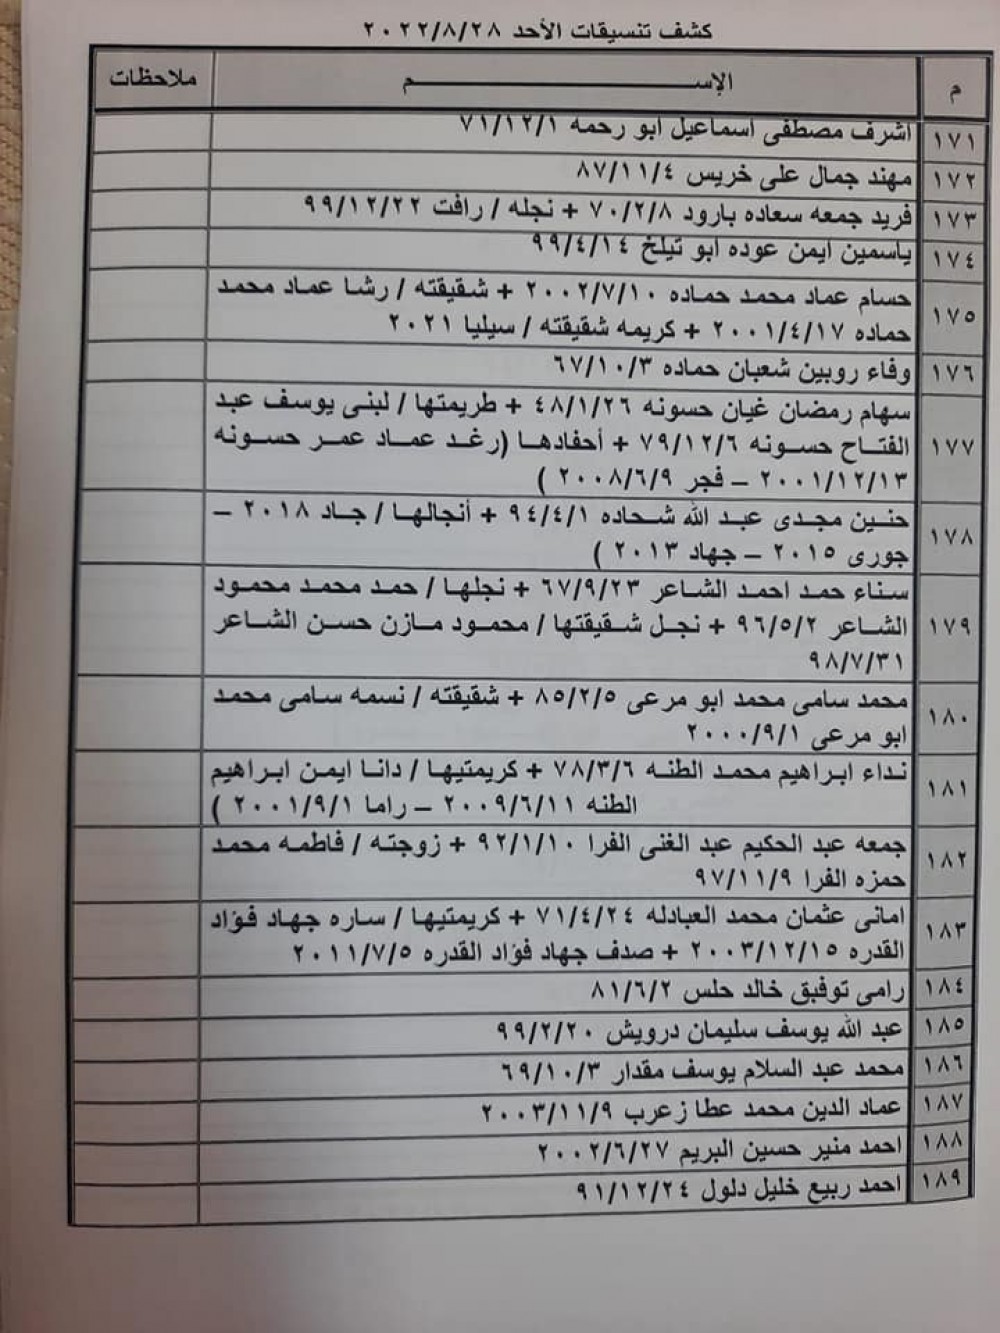 كشف تنسيقات الأحد ٢٠٢٢/٨/٢٨
م الإســـــــــــم ملاحظات
١٧١ اشرف مصطفى اسماعيل ابو رحمه ٧١/١٢/١
١٧٢ مهند جمال على خريس ٨٧/١١/٤
١٧٣ فريد جمعه سعاده بارود ٧٠/٢/٨ + نجله / رافت ٩٩/١٢/٢٢
١٧٤ ياسمين ايمن عوده ابو تيلخ ٩٩/٤/١٤
١٧٥ حسام عماد محمد حماده ٢٠٠٢/٧/١٠ + شقيقته / رشا عماد محمد
حماده ٢٠٠١/٤/١٧ + كريمه شقيقته / سيليا ٢٠٢١
١٧٦ وفاء روبين شعبان حماده ٦٧/١٠/٣
١٧٧ سهام رمضان غيان حسونه ٤٨/١/٢٦ + طريمتها / لبنى يوسف عبد
الفتاح حسونه ٧٩/١٢/٦ + أحفادها (رغد عماد عمر حسونه
٢٠٠١/١٢/١٣ – فجر ٢٠٠٨/٦/٩ )
١٧٨ حنين مجدى عبد الله شحاده ٩٤/٤/١ + أنجالها / جاد ٢٠١٨ –
جورى ٢٠١٥ – جهاد ٢٠١٣ )
١٧٩ سناء حمد احمد الشاعر ٦٧/٩/٢٣ + نجلها / حمد محمد محمود
الشاعر ٩٦/٥/٢ + نجل شقيقتها / محمود مازن حسن الشاعر
٩٨/٧/٣١
١٨٠ محمد سامى محمد ابو مرعى ٨٥/٢/٥ + شقيقته / نسمه سامى محمد
ابو مرعى ٢٠٠٠/٩/١
١٨١ نداء ابراهيم محمد الطنه ٧٨/٣/٦ + كريمتيها / دانا ايمن ابراهيم
الطنه ٢٠٠٩/٦/١١ – راما ٢٠٠١/٩/١ )
١٨٢ جمعه عبد الحكيم عبد الغنى الفرا ٩٢/١/١٠ + زوجته / فاطمه محمد
حمزه الفرا ٩٧/١١/٩
١٨٣ امانى عثمان محمد العبادله ٧١/٤/٢٤ + كريمتيها / ساره جهاد فؤاد
القدره ٢٠٠٣/١٢/١٥ + صدف جهاد فؤاد القدره ٢٠١١/٧/٥
١٨٤ رامى توفيق خالد حلس ٨١/٦/٢
١٨٥ عبد الله يوسف سليمان درويش ٩٩/٢/٢٠
١٨٦ محمد عبد السلام يوسف مقدار ٦٩/١٠/٣
١٨٧ عماد الدين محمد عطا زعرب ٢٠٠٣/١١/٩
١٨٨ احمد منير حسين البريم ٢٠٠٢/٦/٢٧
١٨٩ احمد ربيع خليل دلول ٩١/١٢/٢٤